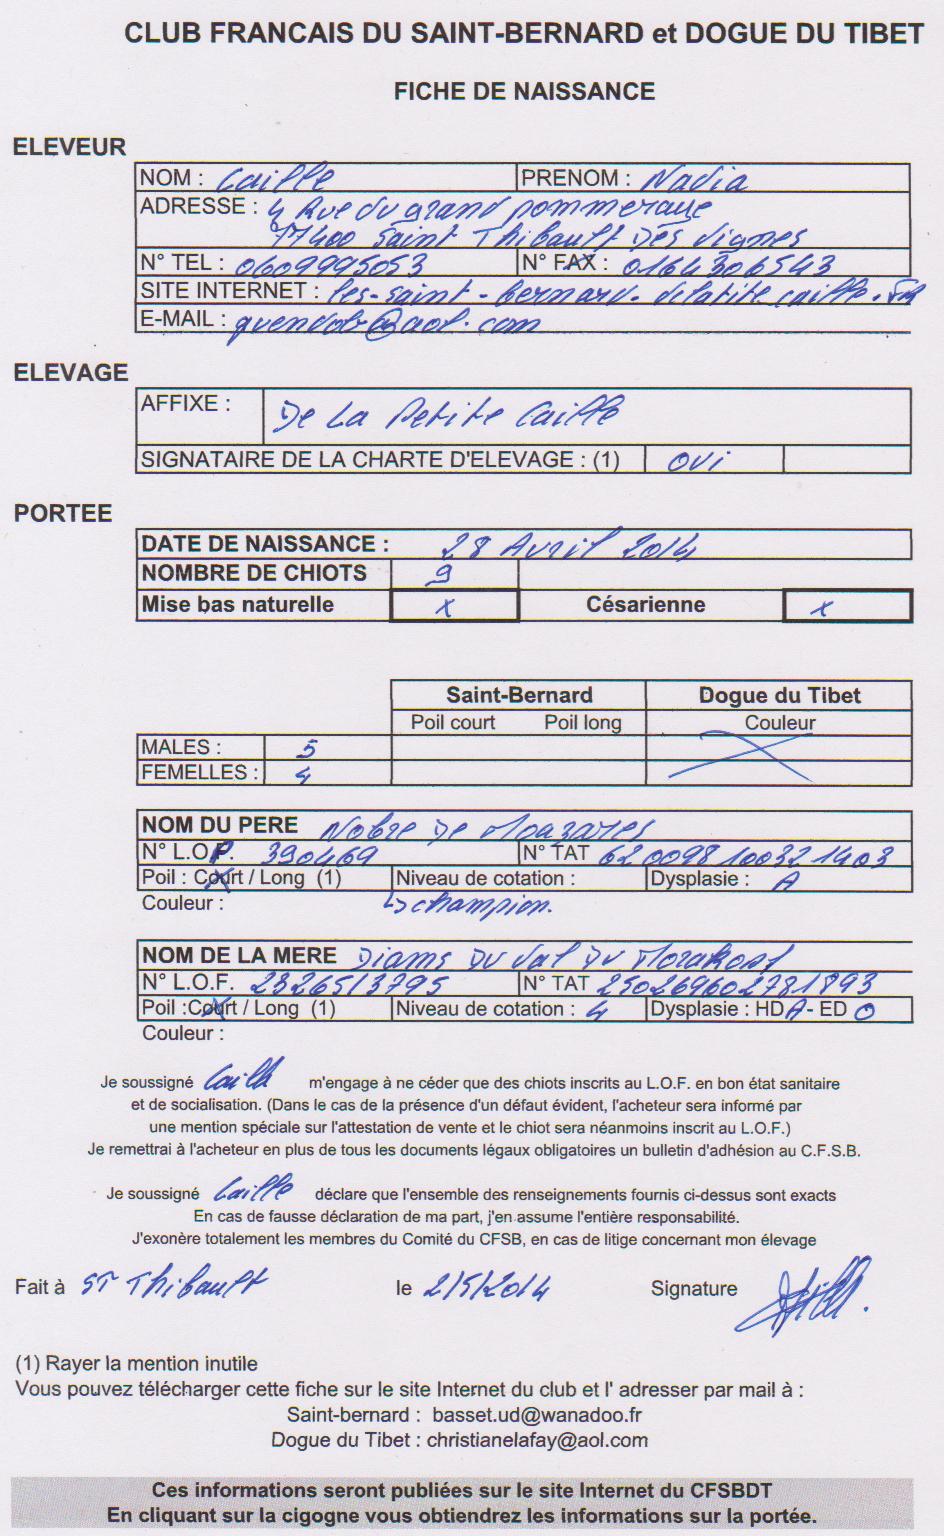 CLUB FRANCAIS DU SAINT-BERNARD et DOGUE DU TIBET
FICHE DE NAISSANCE
ELEVEUR
NOM : Caille PRENOM : Nadia
ADRESSE : 4 Rue du grand pommeraye
77400 Saint Thibault Des Vignes
N° TEL : 0609995053 N° FAX : 0164306543
SITE INTERNET : les-saint-bernard-delatite caille.
E-MAIL : @aol.com
ELEVAGE
AFFIXE : De La Petite Caille
SIGNATAIRE DE LA CHARTE D'ELEVAGE : (1) OUI
PORTEE
DATE DE NAISSANCE : 28 Avril 2014
NOMBRE DE CHIOTS 9
Mise bas naturelle x Césarienne x
Saint-Bernard Dogue du Tibet
Poil court Poil long Couleur
MALES : 5
FEMELLES : 4
NOM DU PERE Nobre De
N° L.O.P. 390469 N° TAT 620098100321403
Poil : Court / Long (1) Niveau de cotation : Dysplasie : A
Couleur : ↳ champion.
NOM DE LA MERE Diams Du Val Du
N° L.O.F. 2326513795 N° TAT 250269602781893
Poil :Court / Long (1) Niveau de cotation : 4 Dysplasie : HD A - ED 0
Couleur :
Je soussigné Caille m'engage à ne céder que des chiots inscrits au L.O.F. en bon état sanitaire
et de socialisation. (Dans le cas de la présence d'un défaut évident, l'acheteur sera informé par
une mention spéciale sur l'attestation de vente et le chiot sera néanmoins inscrit au L.O.F.)
Je remettrai à l'acheteur en plus de tous les documents légaux obligatoires un bulletin d'adhésion au C.F.S.B.
Je soussigné Caille déclare que l'ensemble des renseignements fournis ci-dessus sont exacts
En cas de fausse déclaration de ma part, j'en assume l'entière responsabilité.
J'exonère totalement les membres du Comité du CFSB, en cas de litige concernant mon élevage
Fait à ST Thibault le 2/5/2014 Signature
(1) Rayer la mention inutile
Vous pouvez télécharger cette fiche sur le site Internet du club et l' adresser par mail à :
Saint-bernard : basset.ud@wanadoo.fr
Dogue du Tibet : christianelafay@aol.com
Ces informations seront publiées sur le site Internet du CFSBDT
En cliquant sur la cigogne vous obtiendrez les informations sur la portée.